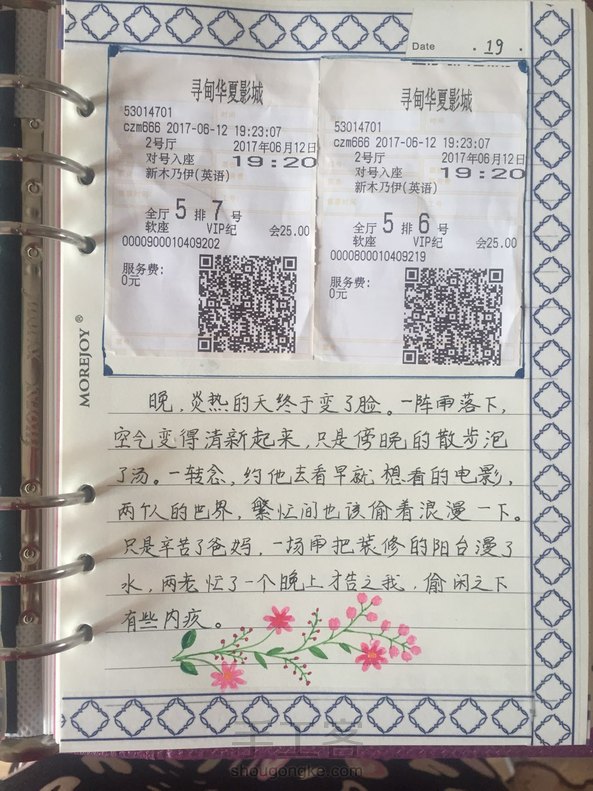 Date .19.
寻甸华夏影城
53014701
czm666 2017-06-12 19:23:07
2号厅 2017年06月12日
对号入座 19:20
新木乃伊(英语)
全厅 5 排 7 号
软座 VIP纪 会25.00
0000900010409202
服务费:
0元
寻甸华夏影城
53014701
czm666 2017-06-12 19:23:07
2号厅 2017年06月12日
对号入座 19:20
新木乃伊(英语)
全厅 5 排 6 号
软座 VIP纪 会25.00
0000800010409219
服务费:
0元
MOREJOY ®
晚，炎热的天终于变了脸。一阵雨落下，
空气变得清新起来，只是傍晚的散步泡
了汤。一转念，约他去看早就想看的电影，
两个人的世界，繁忙间也该偷着浪漫一下。
只是辛苦了爸妈，一场雨把装修的阳台漫了
水，两老忙了一个晚上才告之我，偷闲之下
有些内疚。
手工客
shougongke.com